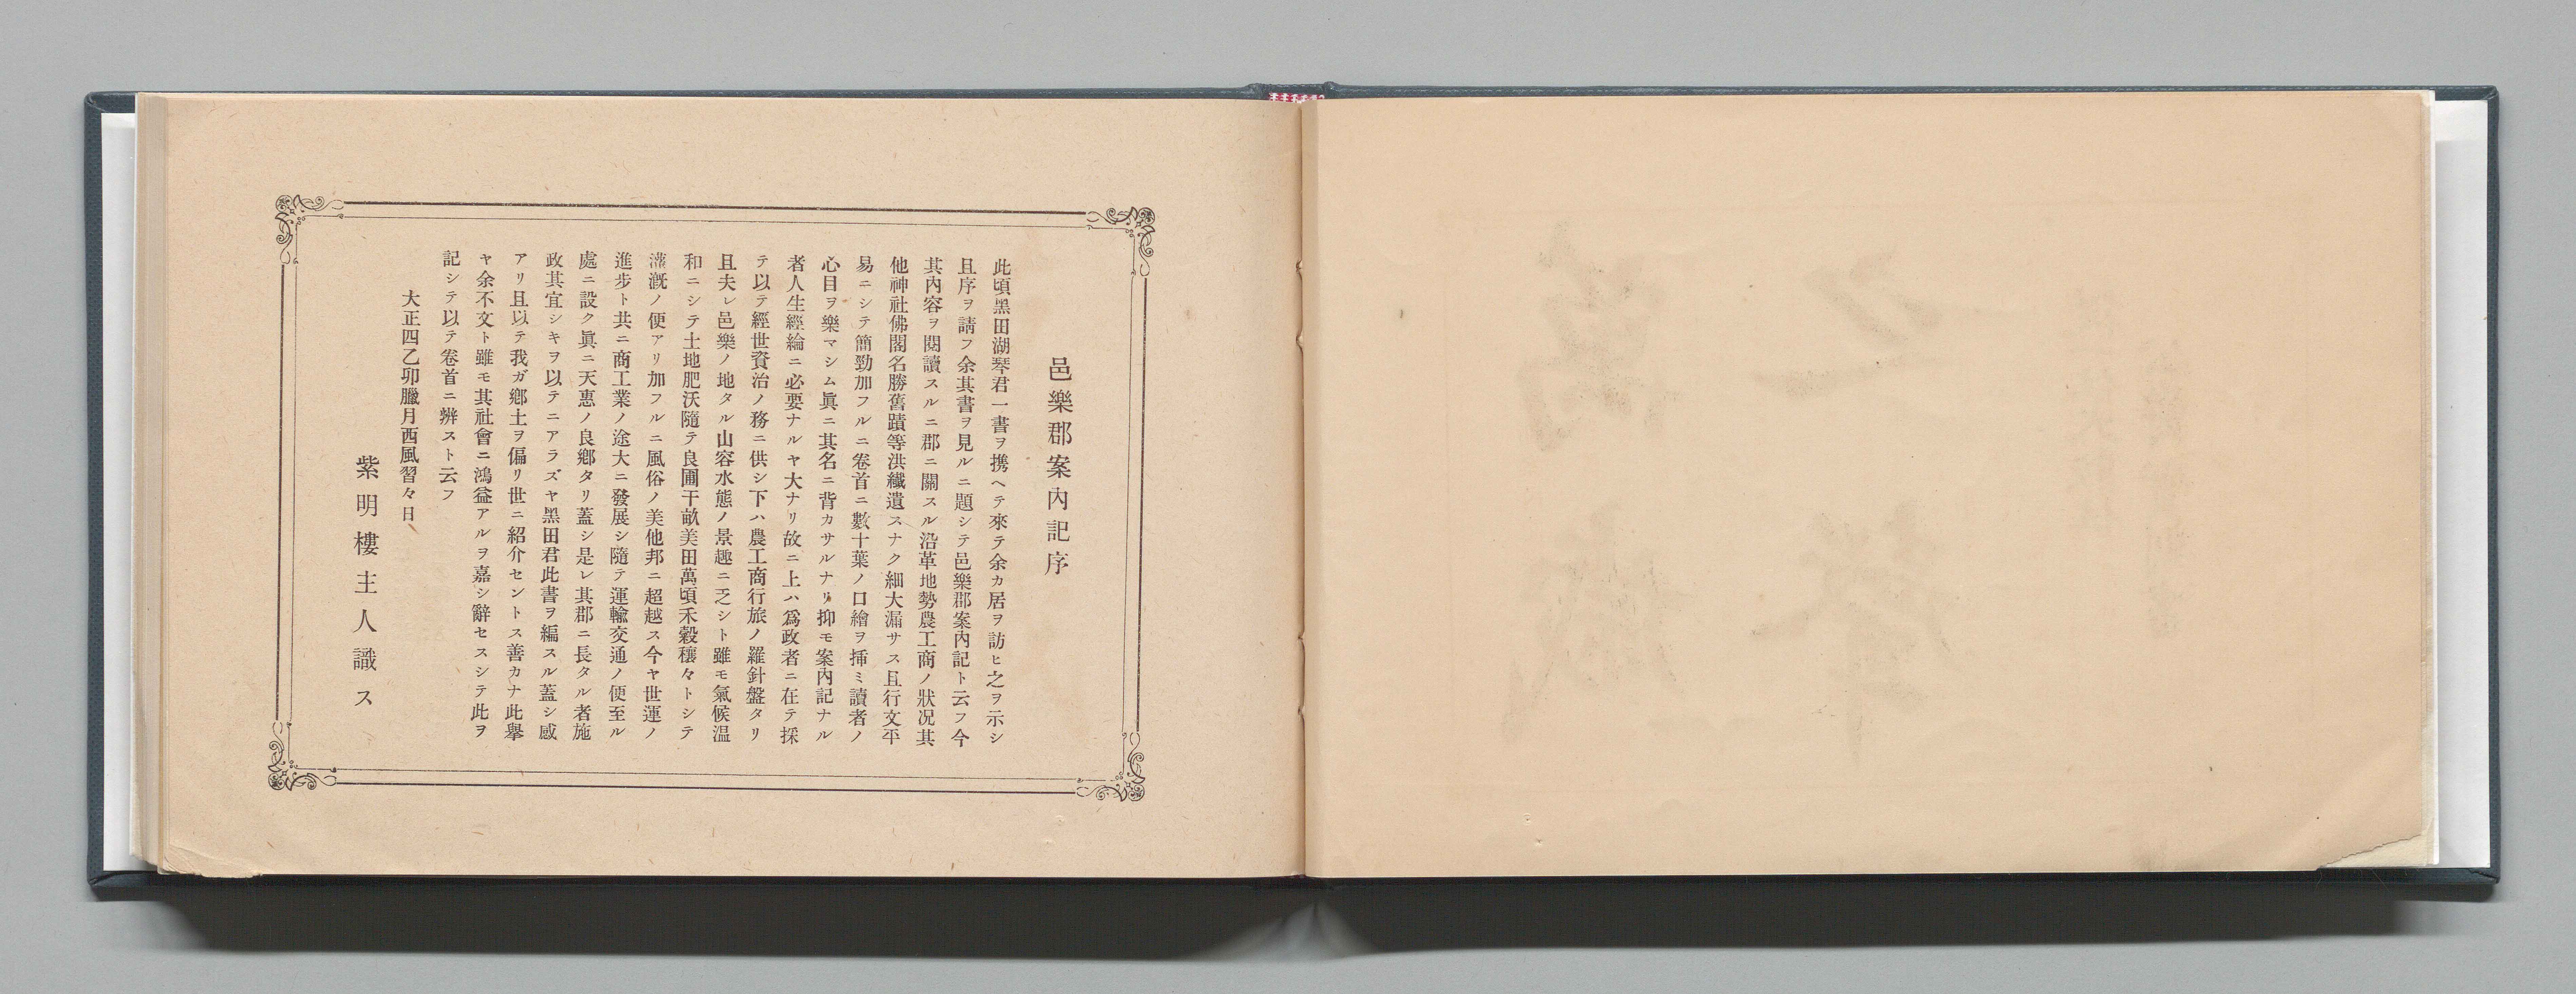 邑樂郡案內記序
此頃黑田湖琴君一書ヲ携ヘテ來テ余カ居ヲ訪ヒ之ヲ示シ
且序ヲ請フ余其書ヲ見ルニ題シテ邑樂郡案內記ト云フ今
其內容ヲ閱讀スルニ郡ニ關スル沿革地勢農工商ノ狀况其
他神社佛閣名勝舊蹟等洪纖遺スナク細大漏サス且行文平
易ニシテ簡勁加フルニ卷首ニ數十葉ノ口繪ヲ揷ミ讀者ノ
心目ヲ樂マシム眞ニ其名ニ背カサルナリ抑モ案內記ナル
者人生經綸ニ必要ナルヤ大ナリ故ニ上ハ爲政者ニ在テ採
テ以テ經世資治ノ務ニ供シ下ハ農工商行旅ノ羅針盤タリ
且夫レ邑樂ノ地タル山容水態ノ景趣ニ乏シト雖モ氣候温
和ニシテ土地肥沃隨テ良圃干畝美田萬頃禾穀穰々トシテ
灌漑ノ便アリ加フルニ風俗ノ美他邦ニ超越ス今ヤ世運ノ
進步ト共ニ商工業ノ途大ニ發展シ隨テ運輸交通ノ便至ル
處ニ設ク眞ニ天惠ノ良鄉タリ蓋シ是レ其郡ニ長タル者施
政其宜シキヲ以テニアラズヤ黑田君此書ヲ編スル蓋シ感
アリ且以テ我ガ鄉土ヲ偏リ世ニ紹介セントス善カナ此擧
ヤ余不文ト雖モ其社會ニ鴻益アルヲ嘉シ辭セスシテ此ヲ
記シテ以テ卷首ニ辨スト云フ
大正四乙卯臘月西風習々日
紫明樓主人識ス